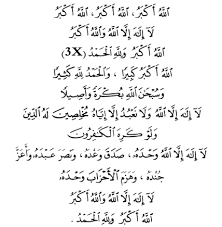 اللَّهُ أَكْبَرُ، اللَّهُ أَكْبَرُ، اللَّهُ أَكْبَرُ
لَآ إِلَهَ إِلَّا اللَّهُ وَاللَّهُ أَكْبَرُ
اللَّهُ أَكْبَرُ وَلِلَّهِ الْحَمْدُ (3X)
اللَّهُ أَكْبَرُ كَبِيرًا ، وَالْحَمْدُ لِلَّهِ كَثِيرًا
وَسُبْحَنَ اللَّهِ بُكْرَةً وَأَصِيلًا
لَآ إِلَهَ إِلَّا اللَّهُ وَلَا نَعْبُدُ إِلَّا إِيَّاهُ مُخْلِصِينَ لَهُ الدِّينَ
وَلَوْ كَرِهَ الْكَفِرُونَ
لَآ إِلَهَ إِلَّا اللَّهُ وَحْدَهُ، صَدَقَ وَعْدَهُ، وَنَصَرَ عَبْدَهُ، وَأَعَزَّ
جُنْدَهُ ، وَهَزَمَ الْأَحْزَابَ وَحْدَهُ
لَآ إِلَهَ إِلَّا اللَّهُ وَاللَّهُ أَكْبَرُ
اللَّهُ أَكْبَرُ وَلِلَّهِ الْحَمْدُ .